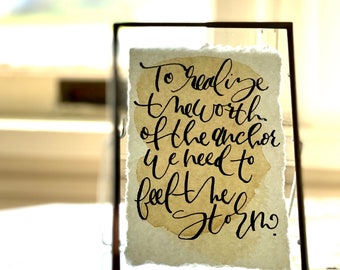 To realize
the worth
of the anchor
we need to
feel the
storm.